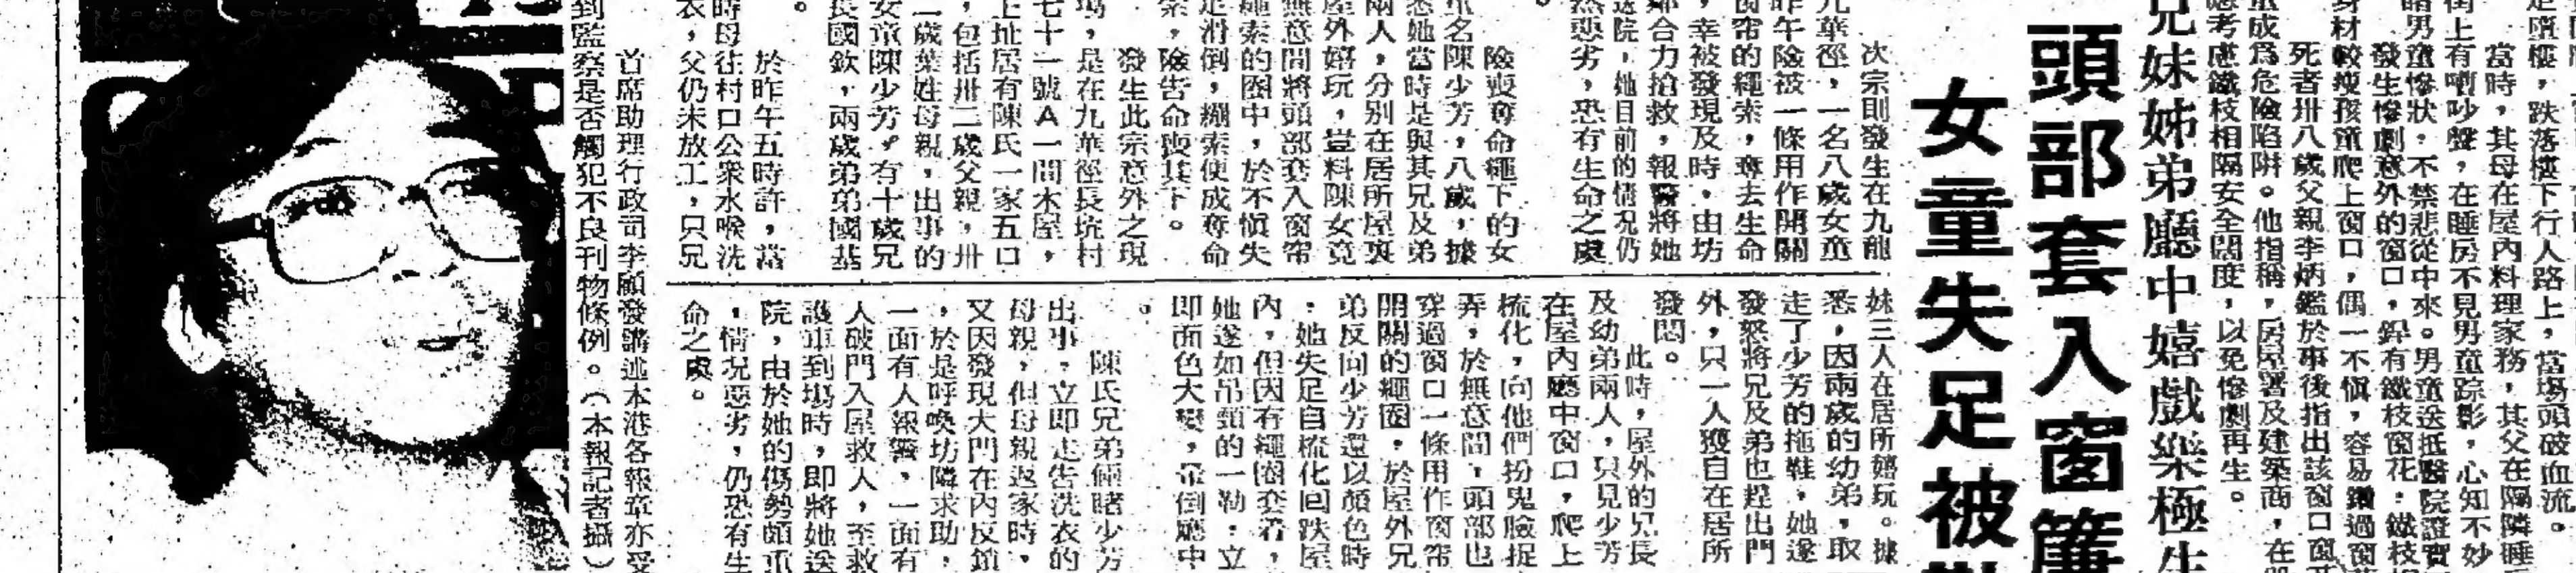 墮樓，跌落樓下行人路上，當場頭破血流。
當時，其母在屋內料理家務，其父在隔隣睡
街上有嘈吵聲，在睡房不見男童踪影，心知不妙
睹男童慘狀，不禁悲從中來。男童送抵醫院證實
發生慘劇意外的窗口，鋅有鐵枝窗花，鐵枝
身材較瘦孩童爬上窗口，偶一不愼，容易鑽過窗
死者卅八歲父親李炳鑑於事後指出該窗口窗
童成爲危險陷阱。他指稱，房屋署及建築商，在
應考慮鐵枝相隔安全闊度，以免慘劇再生。
兄妹姊弟廳中嬉戲樂極生
頭部套入窗簾
女童失足被
次宗則發生在九龍
九華徑，一名八歲女童
昨午險被一條用作開關
窗帘的繩索，奪去生命
，幸被發現及時，由坊
鄰合力搶救，報警將她
送院，她目前的情況仍
然惡劣，恐有生命之虞
。
險喪奪命繩下的女
童名陳少芳，八歲，據
悉她當時是與其兄及弟
兩人，分別在居所屋裏
屋外嬉玩，豈料陳女竟
無意間將頭部套入窗帘
繩索的圈中，於不愼失
足滑倒，繩索便成奪命
索，險告命喪其下。
發生此宗意外之現
塲，是在九華徑長坑村
七十一號A一間木屋，
上址居有陳氏一家五口
，包括卅二歲父親，卅
一歲葉姓母親，出事的
女童陳少芳。有十歲兄
長國欽，兩歲弟弟國基
。
於昨午五時許，當
時母往村口公衆水喉洗
衣，父仍未放工，只兄
妹三人在居所嬉玩。據
悉，因兩歲的幼弟，取
走了少芳的拖鞋，她遂
發怒將兄及弟也趕出門
外，只一人獲自在居所
發悶。
此時，屋外的兄長
及幼弟兩人，只見少芳
在屋內廳中窗口，爬上
梳化，向他們扮鬼臉捉
弄，於無意間，頭部也
穿過窗口一條用作窗帘
開關的繩圈，於屋外兄
弟反向少芳還以顏色時
，她失足自梳化回跌屋
內，但因有繩圈套着，
她遂如吊頸的一勒，立
即面色大變，帚倒廳中
。
陳氏兄弟倆睹少芳
出事，立即走告洗衣的
母親，但母親返家時，
又因發現大門在內反鎖
，於是呼喚坊隣求助，
一面有人報警，一面有
人破門入屋救人，至救
護車到塲時，即將她送
院，由於她的傷勢頗重
，情況惡劣，仍恐有生
命之虞。
首席助理行政司李願發講述本港各報章亦受
到監察是否觸犯不良刊物條例。（本報記者攝）